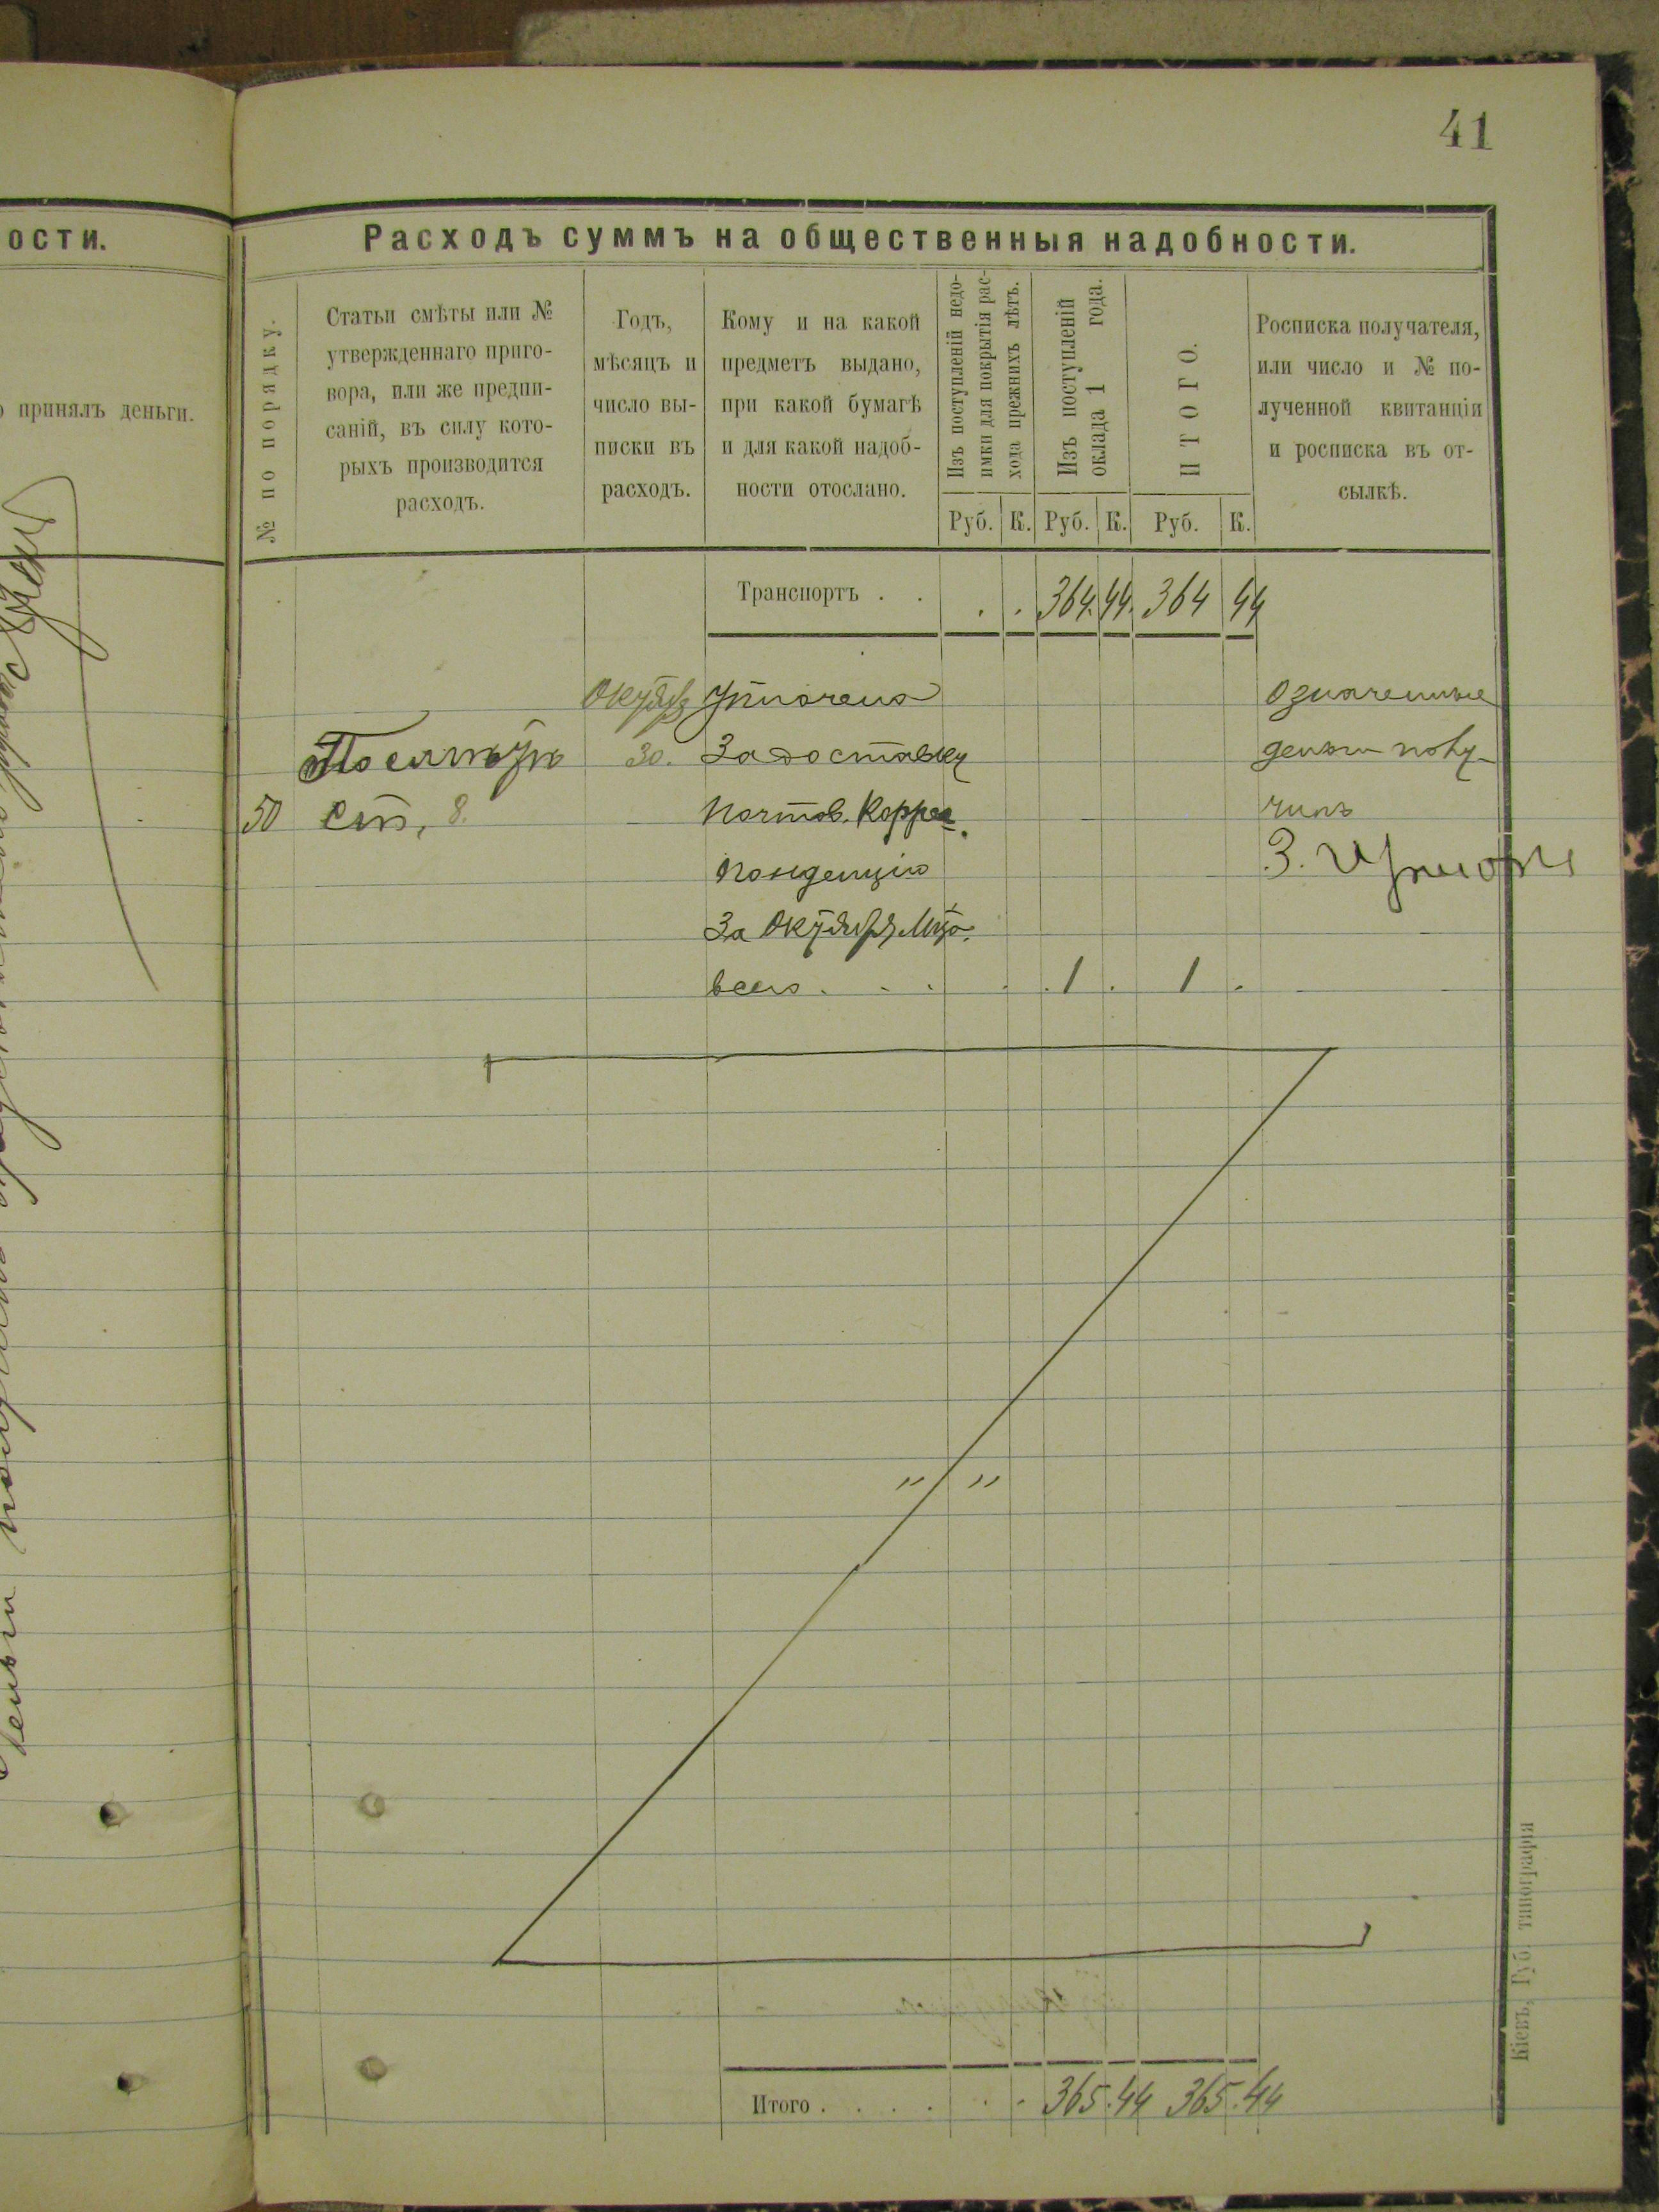 41
ости.
о принялъ деньги.
Расходъ суммъ на общественныя надобности.
№ по порядку.
Статьи смѣты или №
утвержденнаго приго-
вора, или же предпи-
саній, въ силу кото-
рыхъ производится
расходъ.
Годъ,
мѣсяцъ и
число вы-
писки въ
расходъ.
Кому и на какой
предметъ выдано,
при какой бумагѣ
и для какой надоб-
ности отослано.
Изъ поступленій недо-
имки для покрытія рас-
хода прежнихъ лѣтъ.
Изъ поступленій
оклада 1 года.
ИТОГО.
Росписка получателя,
или число и № по-
лученной квитанціи
и росписка въ от-
сылкѣ.
Руб. К. Руб. К. Руб. К.
Транспортъ . . . . 364. 44. 364 44
Октяб Уплачено Означенные
По смѣтѣ 30. За доставку деньги полу-
50 ст. 8. Почтов. Коррес чилъ
понденцію З.
За Октябрь М-цъ
всего . . . . 1 . 1 .
" "
Итого . . . . . . 365.44 365.44
Кіевъ, Губ. типографія